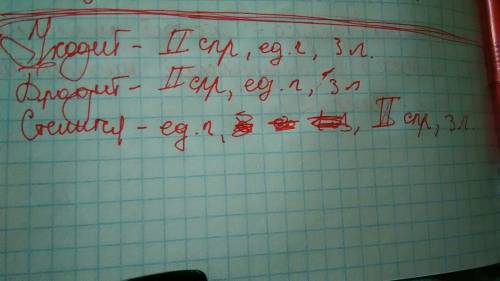 Уходит - II спр, ед.ч, 3 л.
Бродит - II спр, ед.ч, 3 л
Стелится - ед.ч, II спр, 3 л.